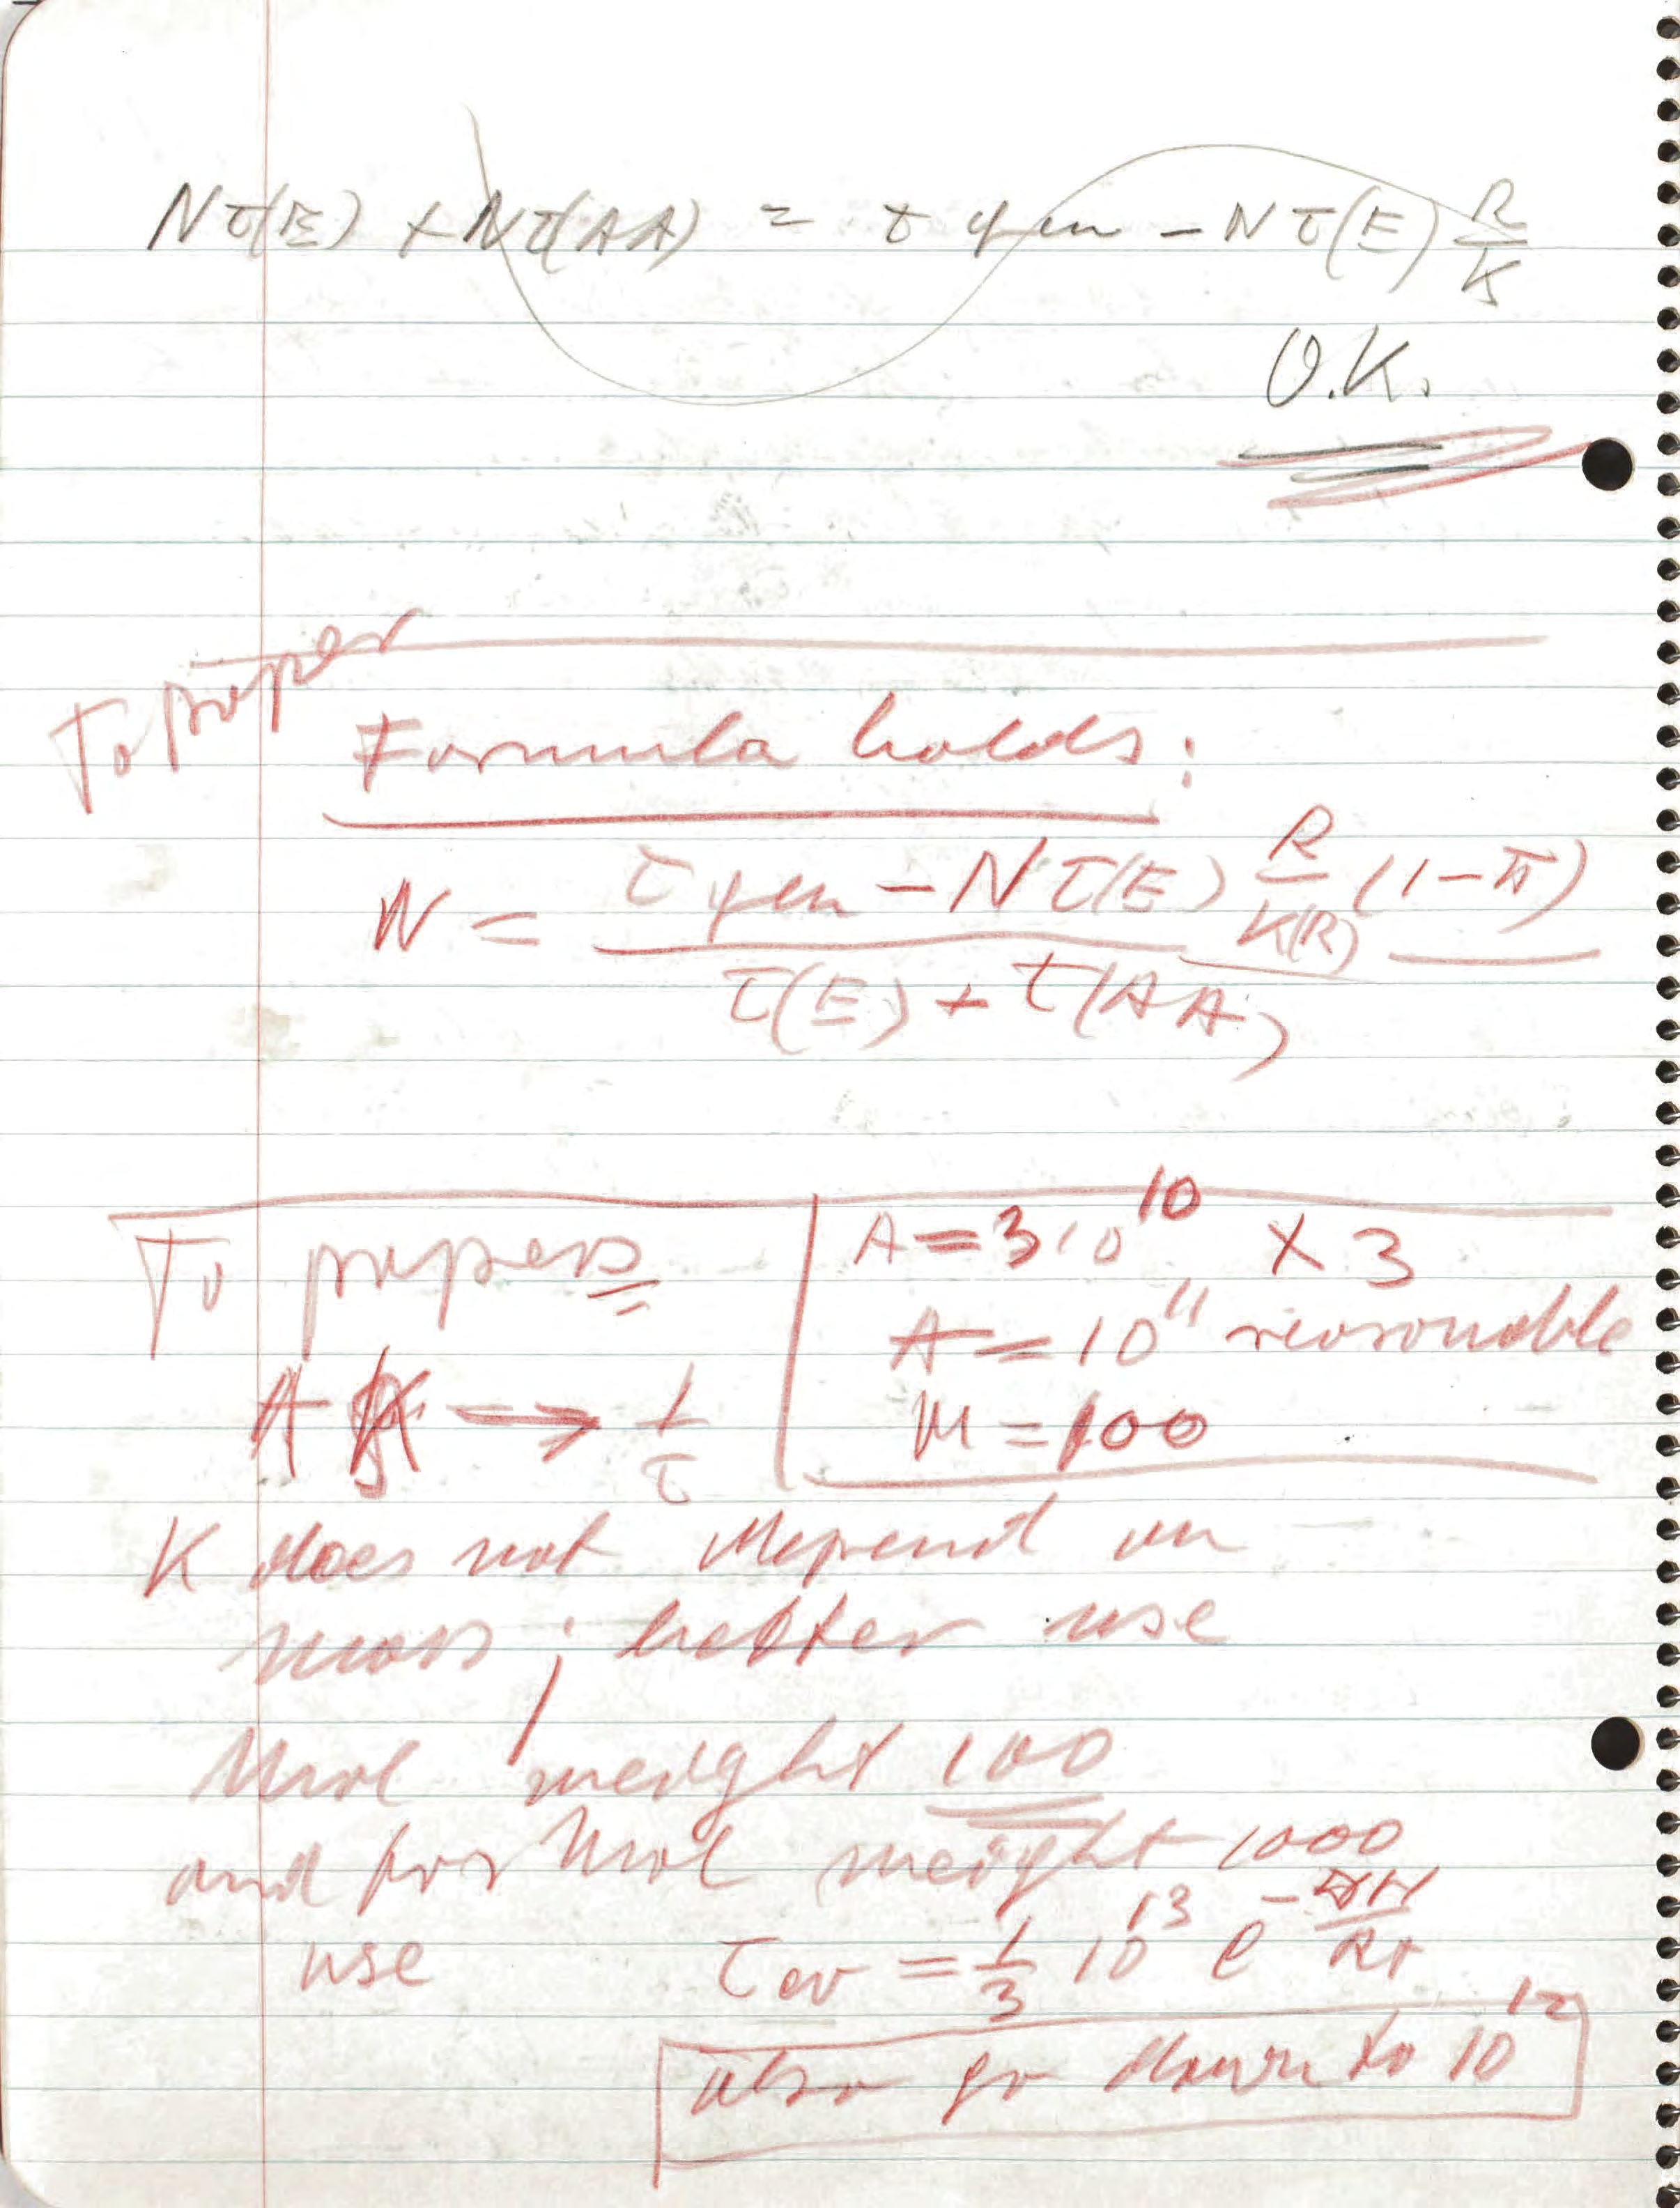 Nτ(E) + Nτ(AA) = τ gen − Nτ(E) R/K
O.K.
To paper
Formula holds:
N = (τ gen − Nτ(E) R/K(R) (1−π)) / (τ(E) + τ(AA))
To papers
A = 3 10^10 × 3
A = 10^11 reasonable
M = 100
A → 1/τ
K does not depend on
mass ; better use
Mol weight 100
and for Mol weight 1000
use τ ev = 1/3 10^13 e^−ΔH/RT
also go down to 10^12